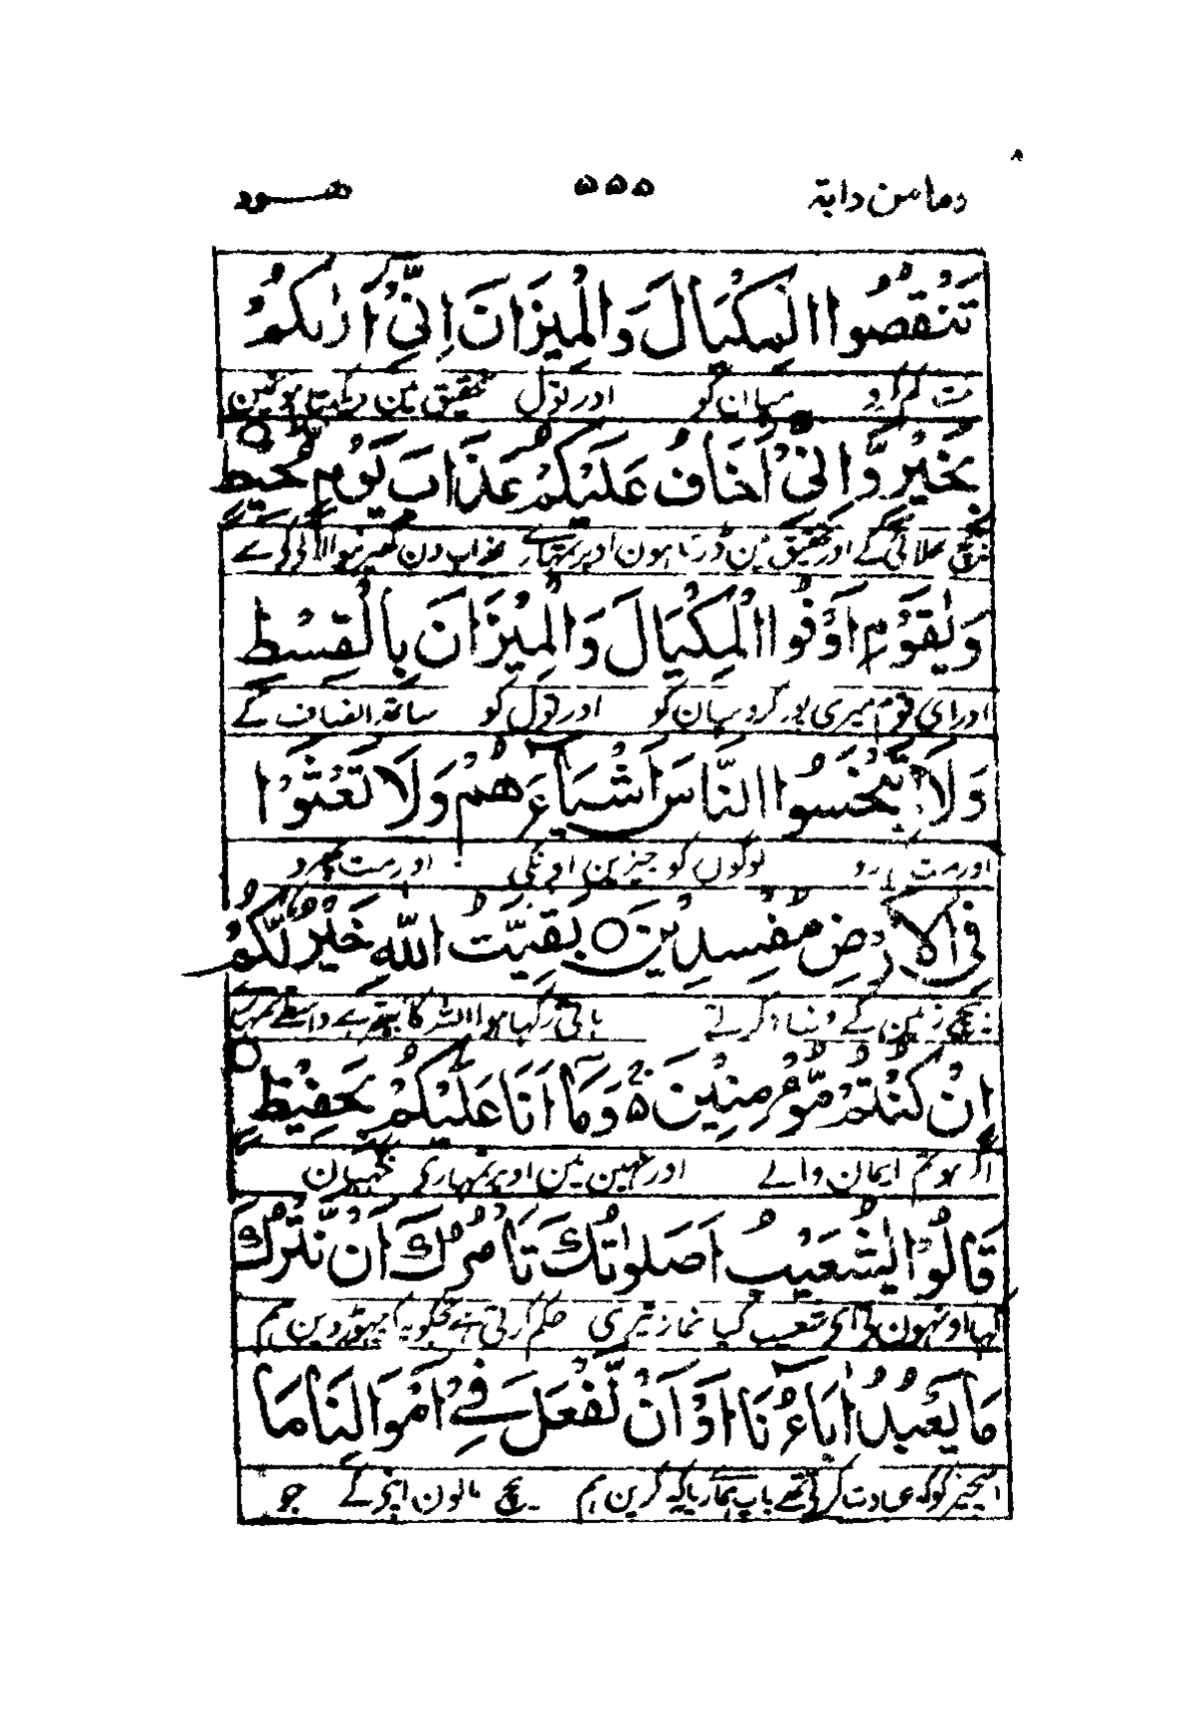 وما من دابة ۵۵۵ هود
تَنْقُصُوا الْمِكْيَالَ وَالْمِيْزَانَ اِنِّیْۤ اَرٰىكُمْ
مت کم کرو پیمان کو اور تول تحقیق مین دیکھتا ہونمین
بِخَيْرٍ وَّاِنِّیْۤ اَخَافُ عَلَيْكُمْ عَذَابَ يَوْمٍ مُّحِيْطٍ ○
بیچ بھلائی کے اور تحقیق مین ڈرتا ہون اوپر تمہارے عذاب دن گھیرنیوالالی کی سے
وَيٰقَوْمِ اَوْفُوا الْمِكْيَالَ وَالْمِيْزَانَ بِالْقِسْطِ
اور ای قوم میری پورکرو پیمان کو اور تول کو ساتھ انصاف کے
وَلَا تَبْخَسُوا النَّاسَ اَشْيَآءَهُمْ وَلَا تَعْثَوْا
اور مت دو لوگوں کو چیزین اونکی اور مت پھرو
فِی الْاَرْضِ مُفْسِدِيْنَ ○ بَقِيَّتُ اللّٰهِ خَيْرٌ لَّكُمْ
بیچ زمین کے فساد کرتے باقی رکہا ہوا اللہ کا بہتر ہے واسطے تمہارے
اِنْ كُنْتُمْ مُّؤْمِنِيْنَ ۵ وَمَآ اَنَا عَلَيْكُمْ بِحَفِيْظٍ ○
اگر ہو تم ایمان والے اور نہین مین اوپر تمہاری نگہبان
قَالُوْا يٰشُعَيْبُ اَصَلٰوتُكَ تَاْمُرُكَ اَنْ نَّتْرُكَ
کہا اونہون نی ای شعیب کیا نماز تیری حکم کرتی ہے تجکو یہ کہ چھوڑ دین ہم
مَا يَعْبُدُ اٰبَآءُنَا اَوْ اَنْ نَّفْعَلَ فِیْۤ اَمْوَالِنَا مَا
اسچیز کو کہ عبادت کرتی تھے باپ ہمارے یا کہ کرین ہم بیچ مالون اپنے کے جو